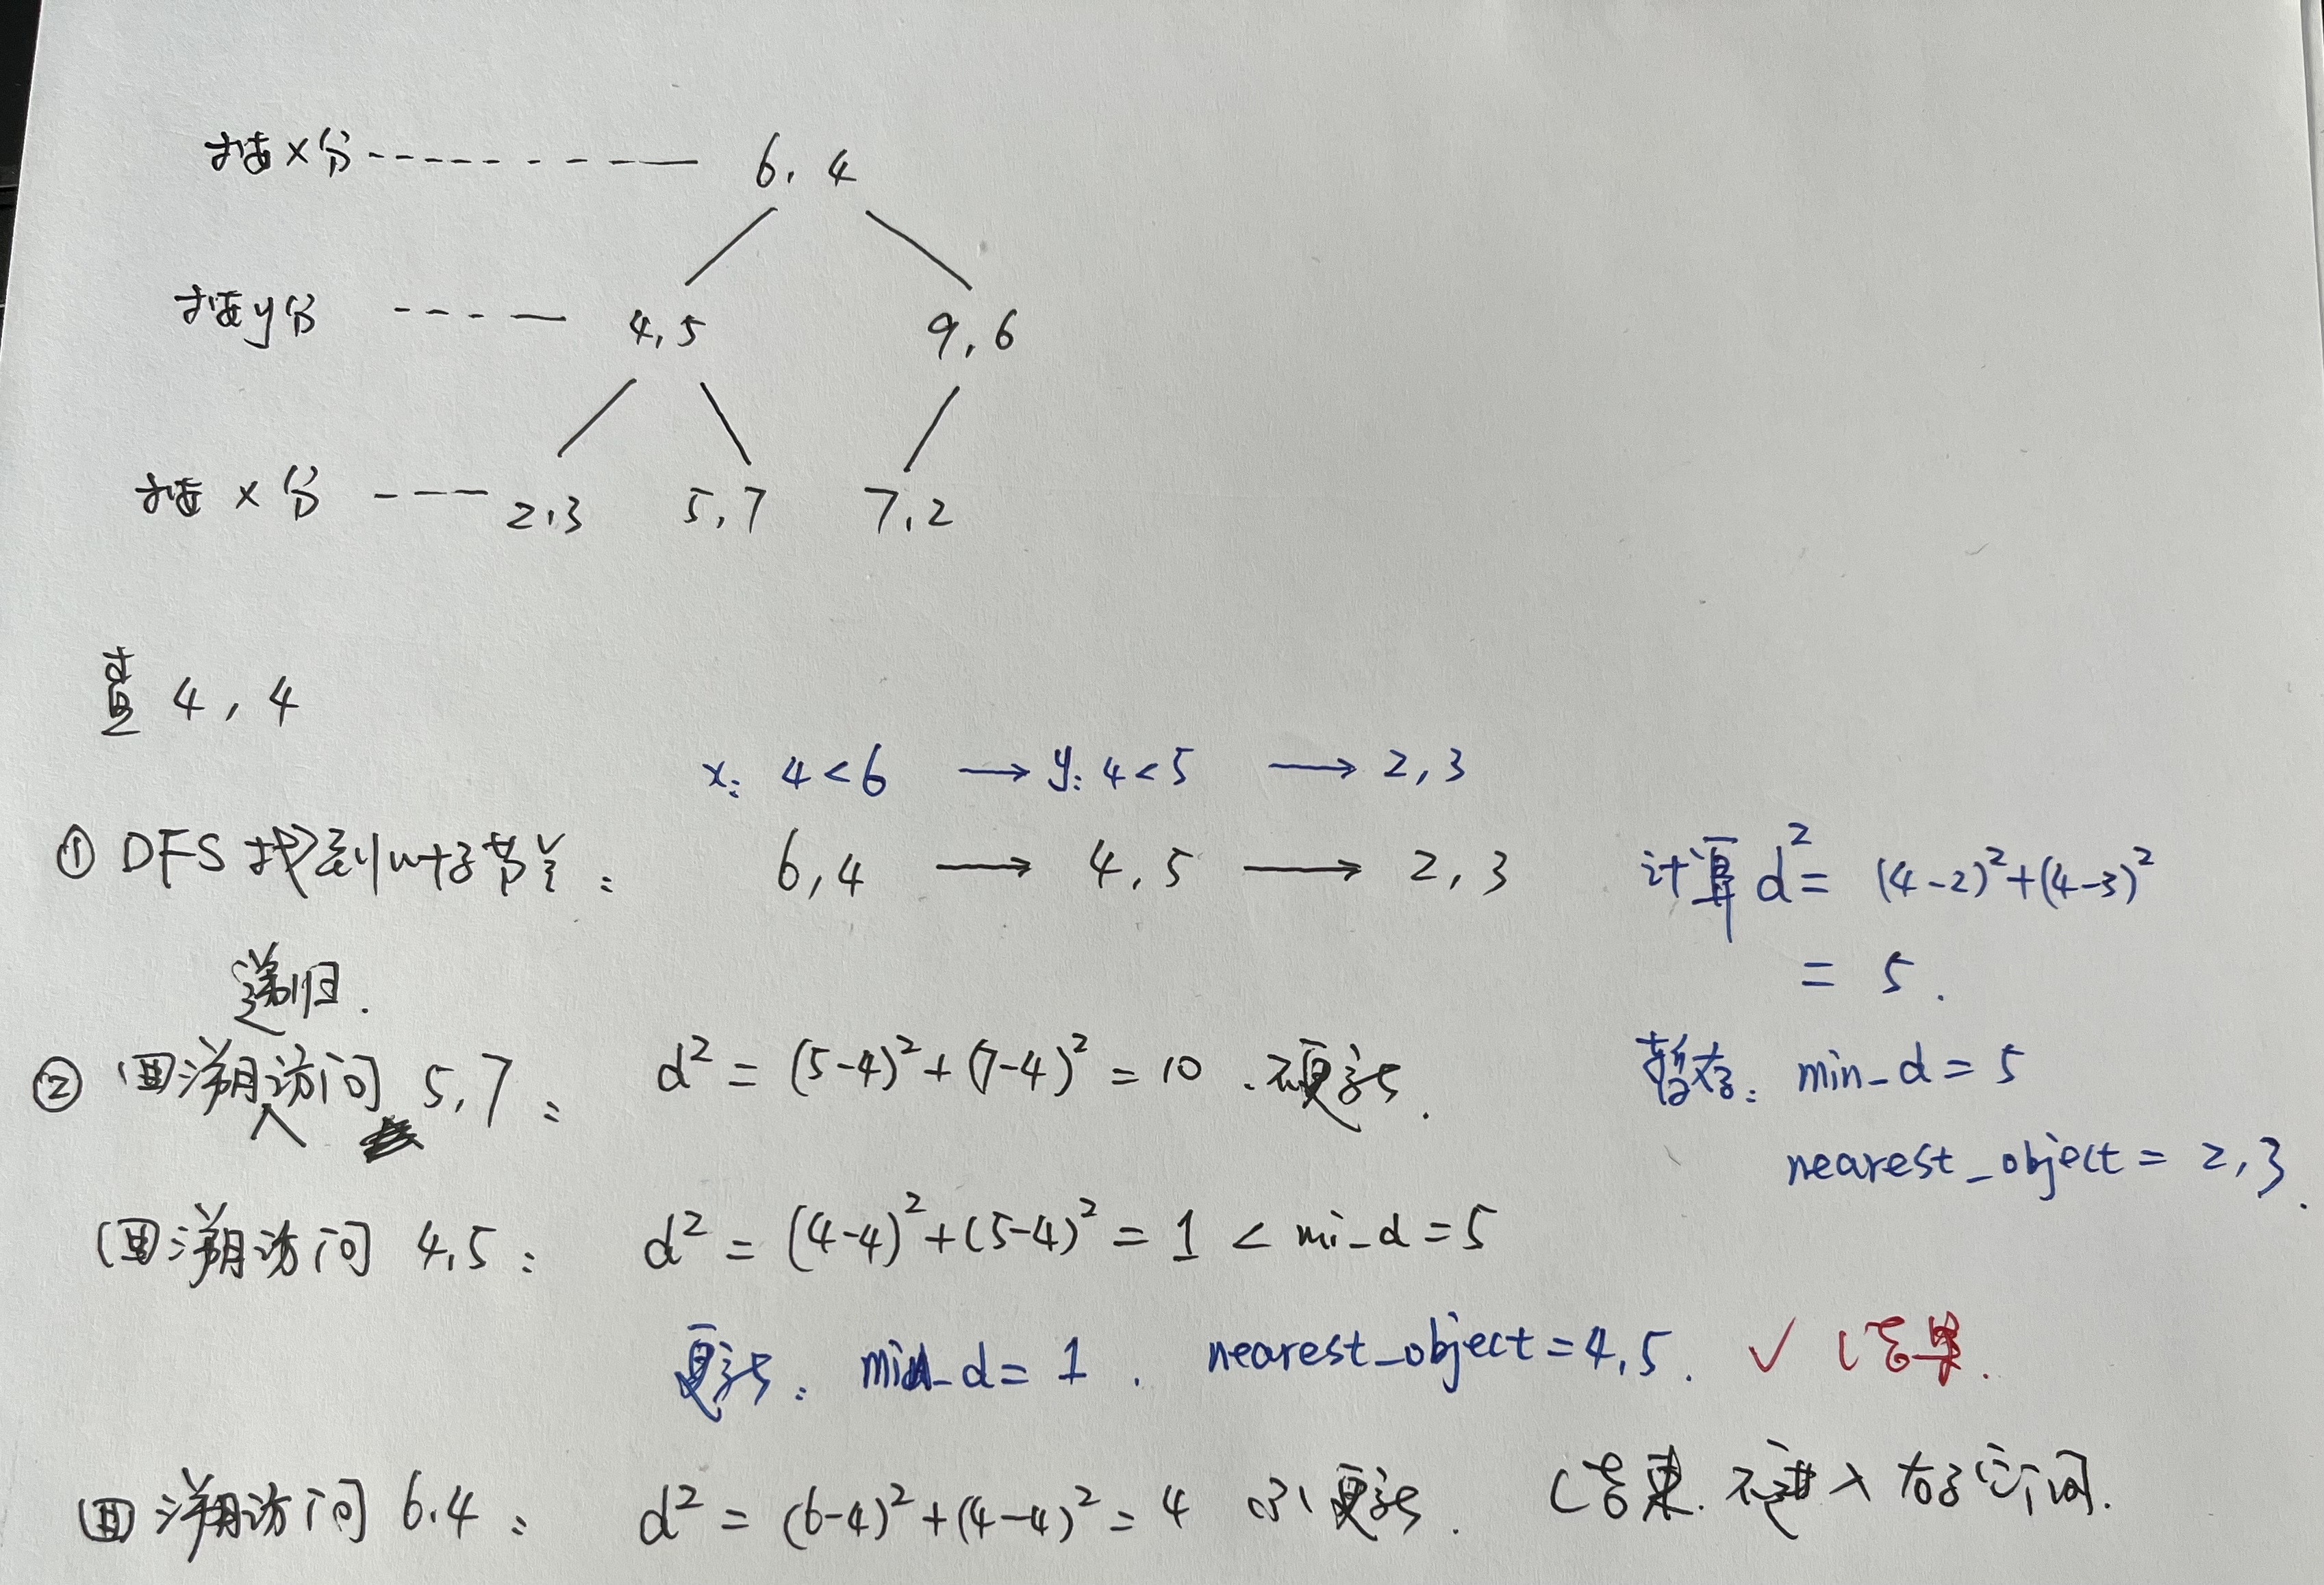 按x分 6, 4
按y分 4,5 9,6
按x分 2,3 5,7 7,2
查 4,4
x: 4<6 → y: 4<5 → 2,3
① DFS 找到叶子节点: 6,4 → 4,5 → 2,3 计算 d² = (4-2)²+(4-3)²
= 5.
递归.
② 回溯访问 5,7: d² = (5-4)²+(7-4)² = 10. 不更新. 暂存: min_d = 5
nearest_object = 2,3.
回溯访问 4,5: d² = (4-4)²+(5-4)² = 1 < mi_d = 5
更新: min_d = 1. nearest_object = 4,5. ✓ 结果.
回溯访问 6.4: d² = (6-4)²+(4-4)² = 4 更新. 结束. 不进入右子访问.